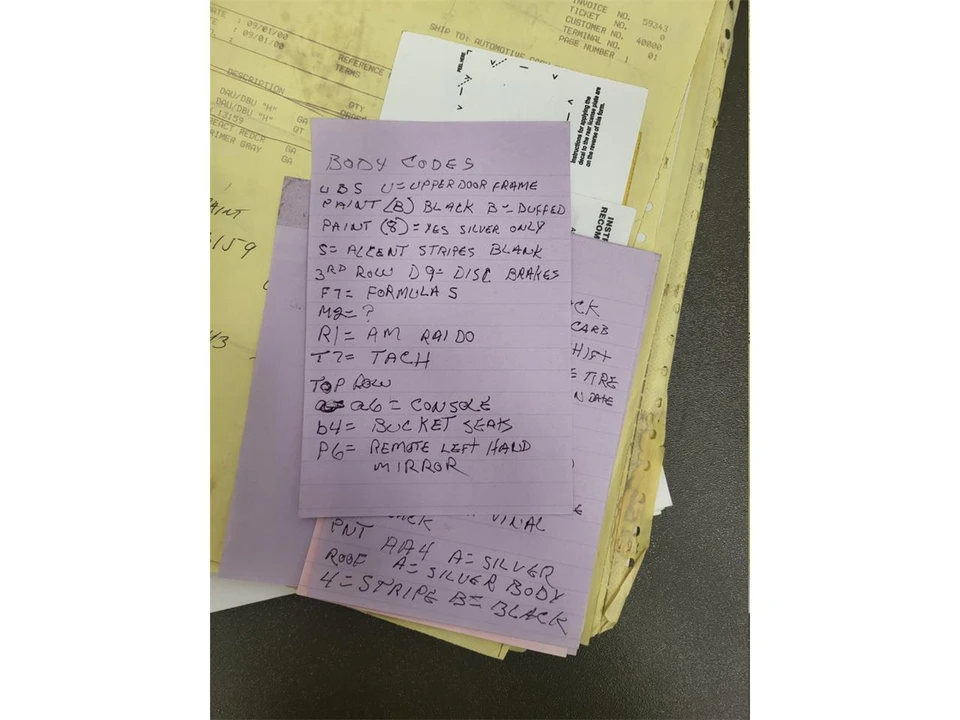 INVOICE NO. 59343
TICKET NO. 0
CUSTOMER NO. 40000
TERMINAL NO.
PAGE NUMBER : 01
: 09/01/00
: 09/01/00
SHIP TO: AUTOMOTIVE
REFERENCE
TERMS
DESCRIPTION
QTY
DAU/DBU "H" GA
DAU/DBU "H" QT
13159
REACT REDCR GA
GRAY GA
PEEL HERE
Instructions for applying the
decal to the rear license plate are
on the reverse of this form.
INST
RECOM
BODY CODES
UBS U=UPPER DOOR FRAME
PAINT (B) BLACK B=DUFFED
PAINT (8)=YES SILVER ONLY
S=ACCENT STRIPES BLANK
3RD ROW D9=DISC BRAKES
F7= FORMULA S
M2=?
R1= AM RAIDO
T7= TACH
TOP ROW
a6= CONSOLE
b4= BUCKET SEATS
P6= REMOTE LEFT HAND
MIRROR
CK
CARB
HIST
E TIRE
N DATE
VINAL
PNT AA4 A= SILVER
ROOF A= SILVER BODY
4= STRIPE B= BLACK